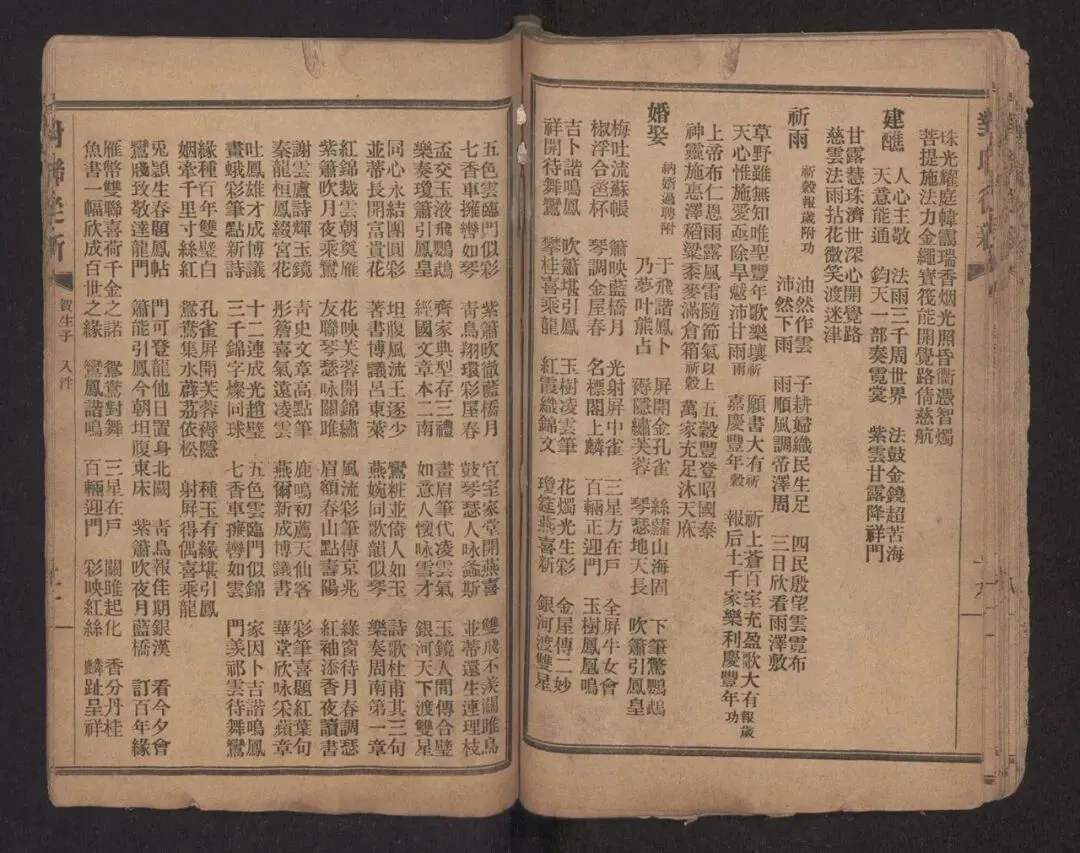 珠光耀庭幃靄瑞香烟光照昏衢憑智燭
菩提施法力金繩寶筏能開覺路倩慈航
建醮 人心主敬 法雨三千周世界 法鼓金鐃超苦海
天意能通 鈞天一部奏霓裳 紫雲甘露降祥門
甘露慧珠濟世深心開覺路
慈雲法雨拈花微笑渡迷津
祈雨 祈穀報歲附功 油然作雲 子耕婦織民生足 四民殷望雲霓布
沛然下雨 雨順風調帝澤周 三日欣看雨澤敷
草野雖無知唯聖豐年歌樂壤祈 願書大有祈 祈上蒼百室充盈歌大有報歲
天心惟施愛亟除旱魃沛甘雨雨 嘉慶豐年穀 報后土千家樂利慶豐年功
上帝布仁恩雨露風雷隨節氣以上 五穀豐登昭國泰
神靈施惠澤稻粱黍麥滿倉箱祈穀 萬家充足沐天庥
婚娶 納婚過聘附 于飛諧鳳卜 屏開金孔雀 絲蘿山海固 下筆驚鸚鵡
乃夢叶熊占 褥隱繡芙蓉 琴瑟地天長 吹簫引鳳皇
梅吐流蘇帳 簫映藍橋月 光射屏中雀 三星方在戶 全屏牛女會
椒浮合巹杯 琴調金屋春 名標閣上麟 百輛正迎門 玉樹鳳凰鳴
吉卜諧鳴鳳 吹簫堪引鳳 玉樹凌雲筆 花燭光生彩 金屋傳二妙
祥開待舞鸞 攀桂喜乘龍 紅霞織錦文 瓊筵燕喜新 銀河渡雙星
五色雲臨門似彩 紫簫吹徹藍橋月 宜室家堂開燕喜 雙飛不羨關雎鳥
七香車擁轡如琴 青鳥翔環彩屋春 鼓琴瑟人咏螽斯 並蒂還生連理枝
盃交玉液飛鸚鵡 齊家典型存三禮 畫眉筆代凌雲氣 玉鏡人間傳合璧
樂奏瓊簫引鳳皇 經國文章本二南 如意人懷咏雪才 銀河天下渡雙星
同心永結團圓彩 坦腹風流王逐少 鸞粧並倚人如玉 詩歌杜甫其三句
並蒂長開富貴花 著書博議呂東萊 燕婉同歌韻似琴 樂奏周南第一章
紅錦裁雲朝奠雁 花映芙蓉開錦繡 風流彩筆傳京兆 綠窗待月春調瑟
紫簫吹月夜乘鸞 友聯琴瑟咏關雎 眉額春山點壽陽 紅袖添香夜讀書
謝雲盧詩輝玉鏡 靑史文章高點筆 鹿鳴初薦天仙客 彩筆喜題紅葉句
秦龍桓鳳綴宮花 彤簷喜氣遠凌雲 燕爾新成博議書 華堂欣咏采蘋章
吐鳳雄才成博議 十二連成光趙璧 五色雲臨門似錦 家因卜吉諧鳴鳳
畫蛾彩筆點新詩 三千錦字燦同珠 七香車擁轡如雲 門美祁雲待舞鸞
緣種百年雙璧白 孔雀屏開芙蓉褥隱 種玉有緣堪引鳳
姻牽千里寸絲紅 鴛鴦集水薜荔依松 射屏得偶喜乘龍
兎頴生春題鳳帖 門可登龍他日置身北闕 靑鳥報佳期銀漢 看今夕會
鸞牋致敬達龍門 簫能引鳳今朝坦腹東床 紫簫吹夜月藍橋 訂百年緣
雁幣雙聯喜荷千金之諾 鴛鴦對舞 三星在戶 關雎起化 香分丹桂
魚書一幅欣成百世之緣 鸞鳳諧鳴 百輛迎門 彩映紅絲 麟趾呈祥
賀生子 入泮